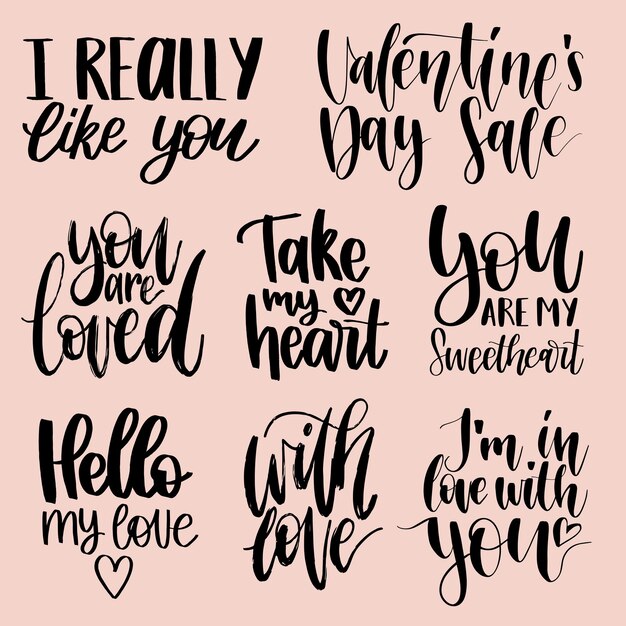 I REALLY
like you
Valentine's
Day Sale
you
are
loved
Take
my
heart
You
ARE MY
Sweetheart
Hello
my love
with
love
I'm in
love with
you